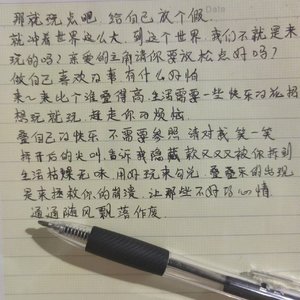 Date
那就玩点吧 给自己放个假
就冲着世界这么大, 到这个世界, 我们不就是来
玩的吗? 亲爱的主角请你要放松点好吗?
做自己喜欢的事, 有什么好怕
来~来比个谁叠得高, 生活需要一些快乐的花招
想玩就玩 赶走你的烦恼
叠自己的快乐 不需要参照 请对我笑一笑
拆开后的尖叫, 告诉我隐藏款又又又被你拆到
生活枯燥无味, 用好玩来勾兑, 叠叠乐的出现
是来拯救你的崩溃, 让那些不好的心情
通通随风飘落作废